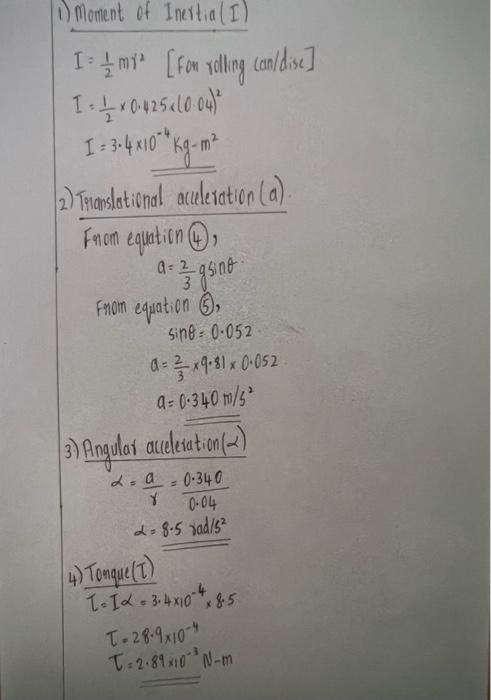 1) Moment of Inertia (I)
I = 1/2 mr² [For rolling can/disc]
I = 1/2 × 0.425 × (0.04)²
I = 3.4×10⁻⁴ Kg-m²
2) Translational acceleration (a).
From equation ④,
a = 2/3 g sinθ.
From equation ⑤,
sinθ = 0.052.
a = 2/3 × 9.81 × 0.052.
a = 0.340 m/s²
3) Angular acceleration (α)
α = a/r = 0.340/0.04
α = 8.5 rad/s²
4) Torque (τ)
τ = Iα = 3.4×10⁻⁴ × 8.5
τ = 28.9×10⁻⁴
τ = 2.89×10⁻³ N-m